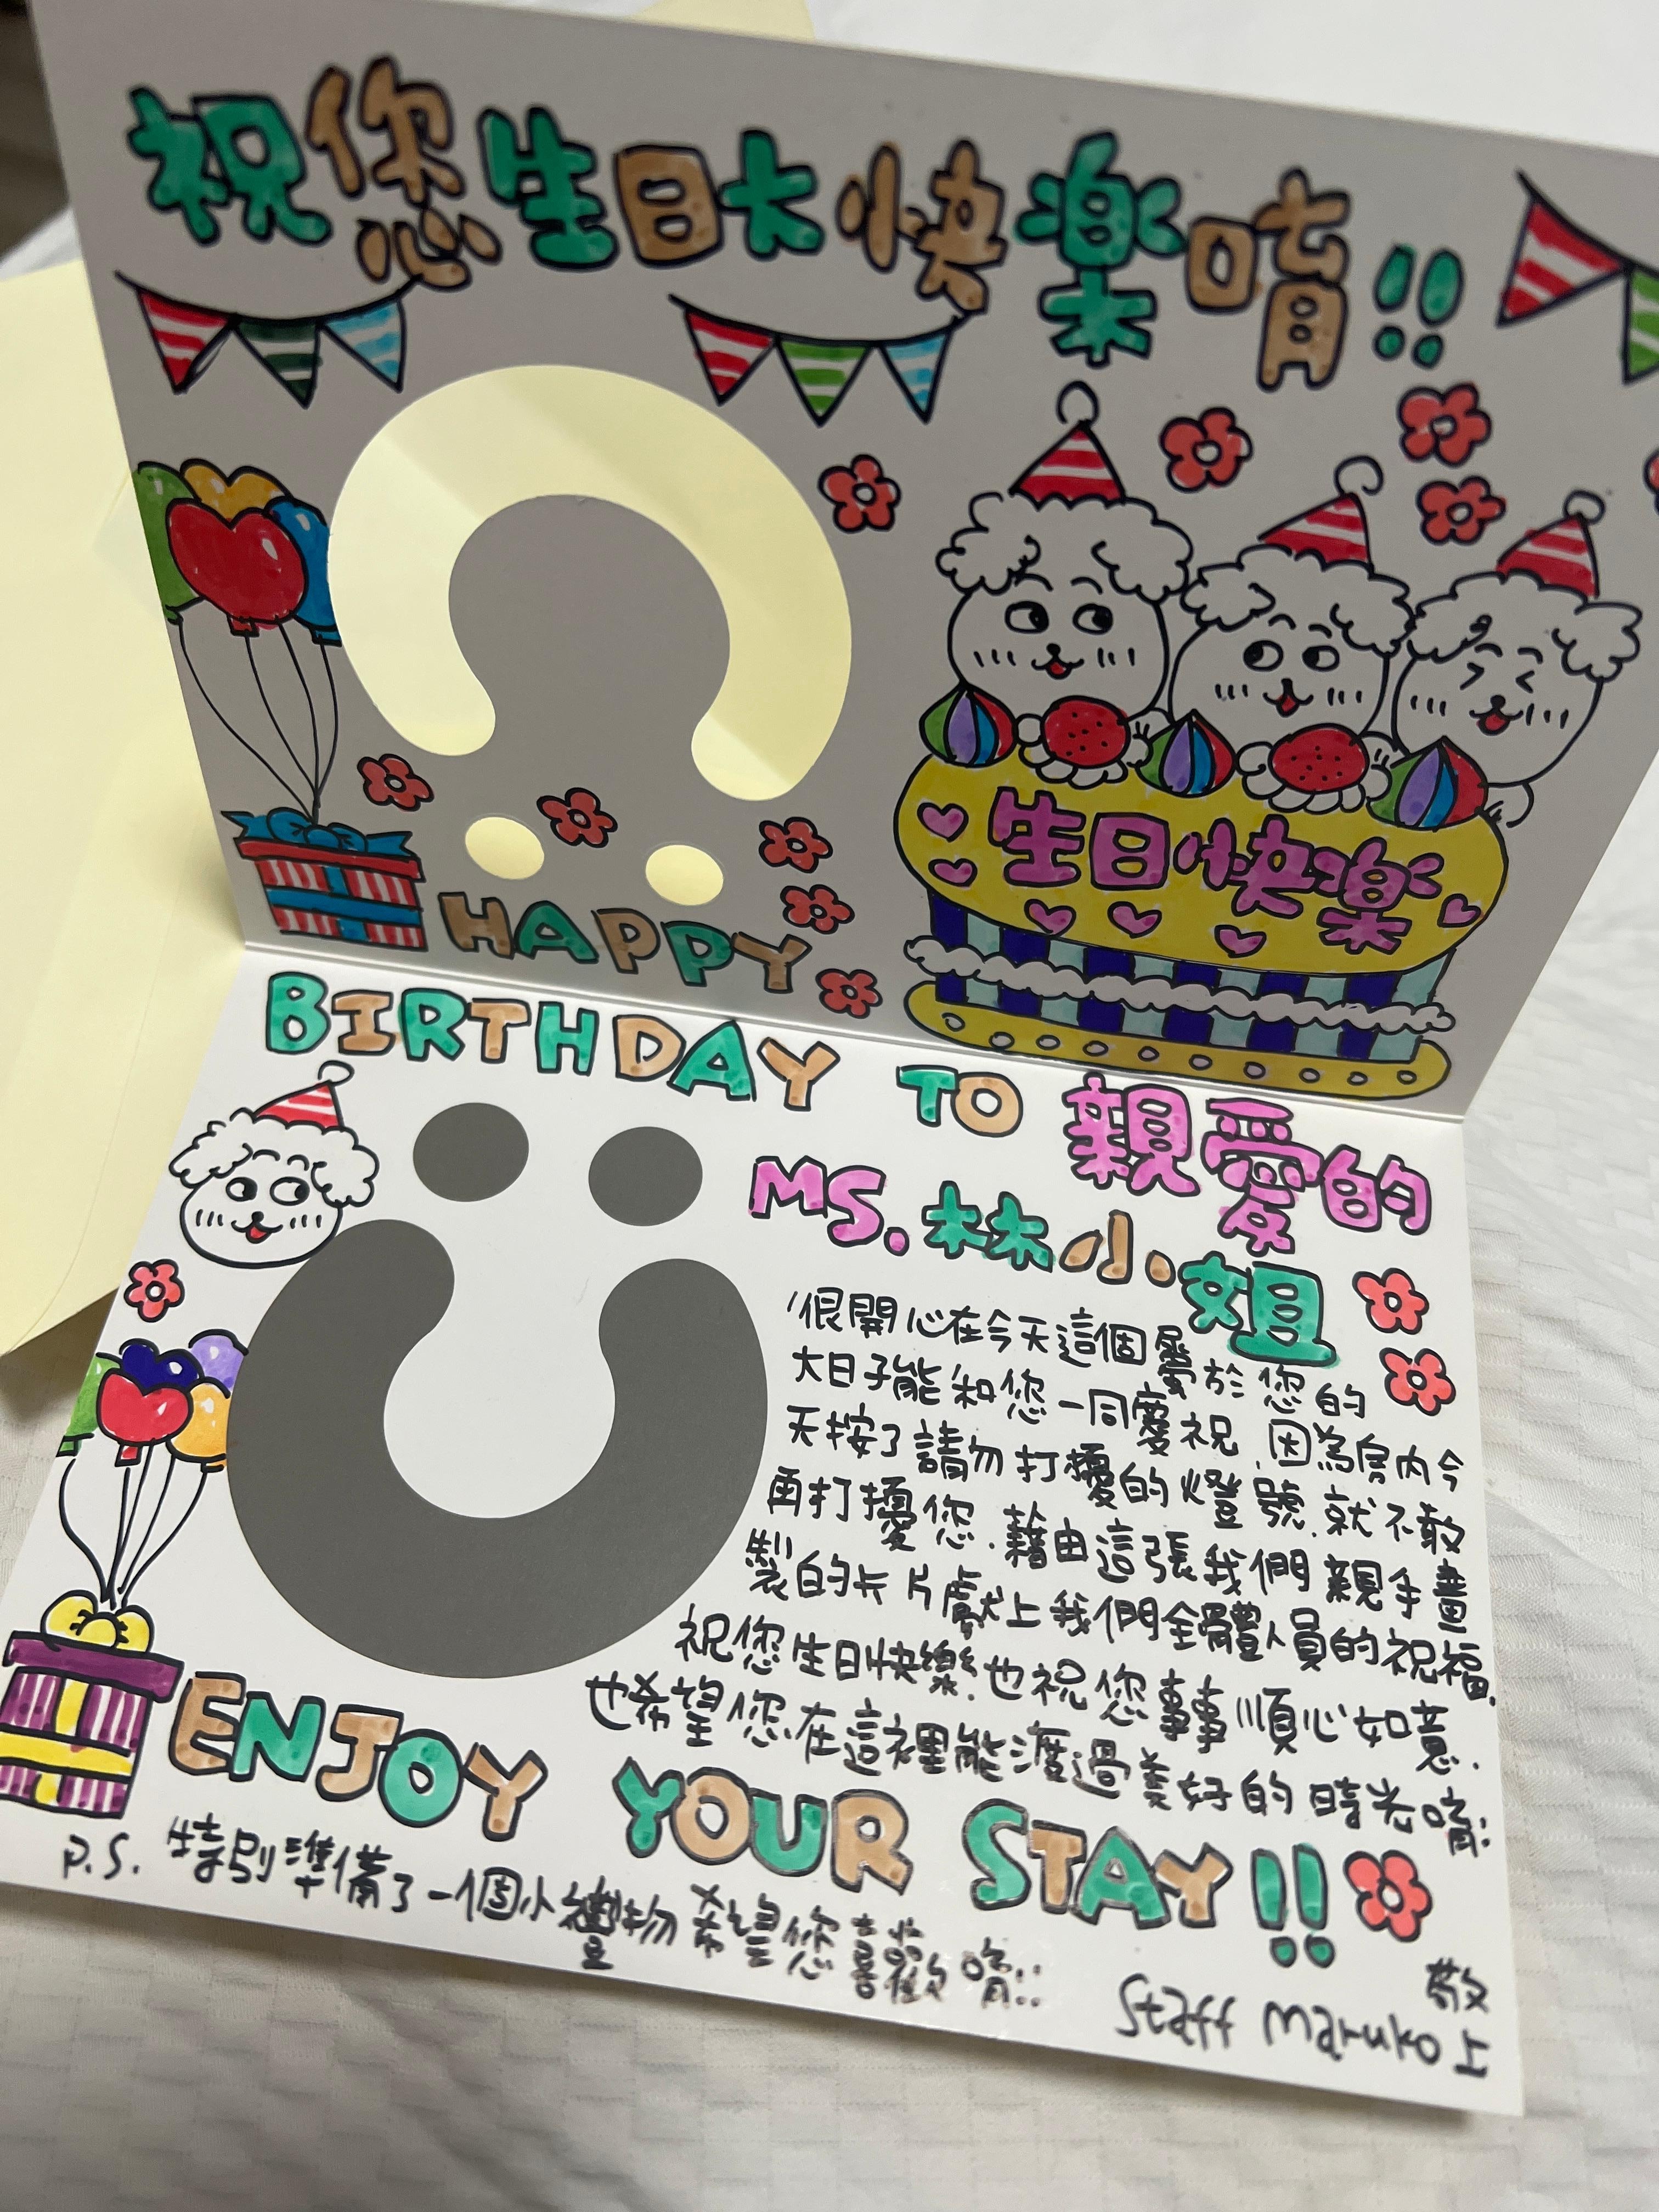 祝您生日大快樂唷!!
生日快樂
HAPPY
BIRTHDAY TO 親愛的
MS. 林小姐
很開心在今天這個屬於您的
大日子能和您一同慶祝.因為房內今
天按了請勿打擾的燈號.就不敢
再打擾您.藉由這張我們親手畫
製的卡片獻上我們全體人員的祝福.
祝您生日快樂.也祝您事事順心如意.
也希望您在這裡能渡過美好的時光唷!!
ENJOY YOUR STAY!!
P.S. 特別準備了一個小禮物 希望您喜歡唷!!
敬
Staff Maruko 上